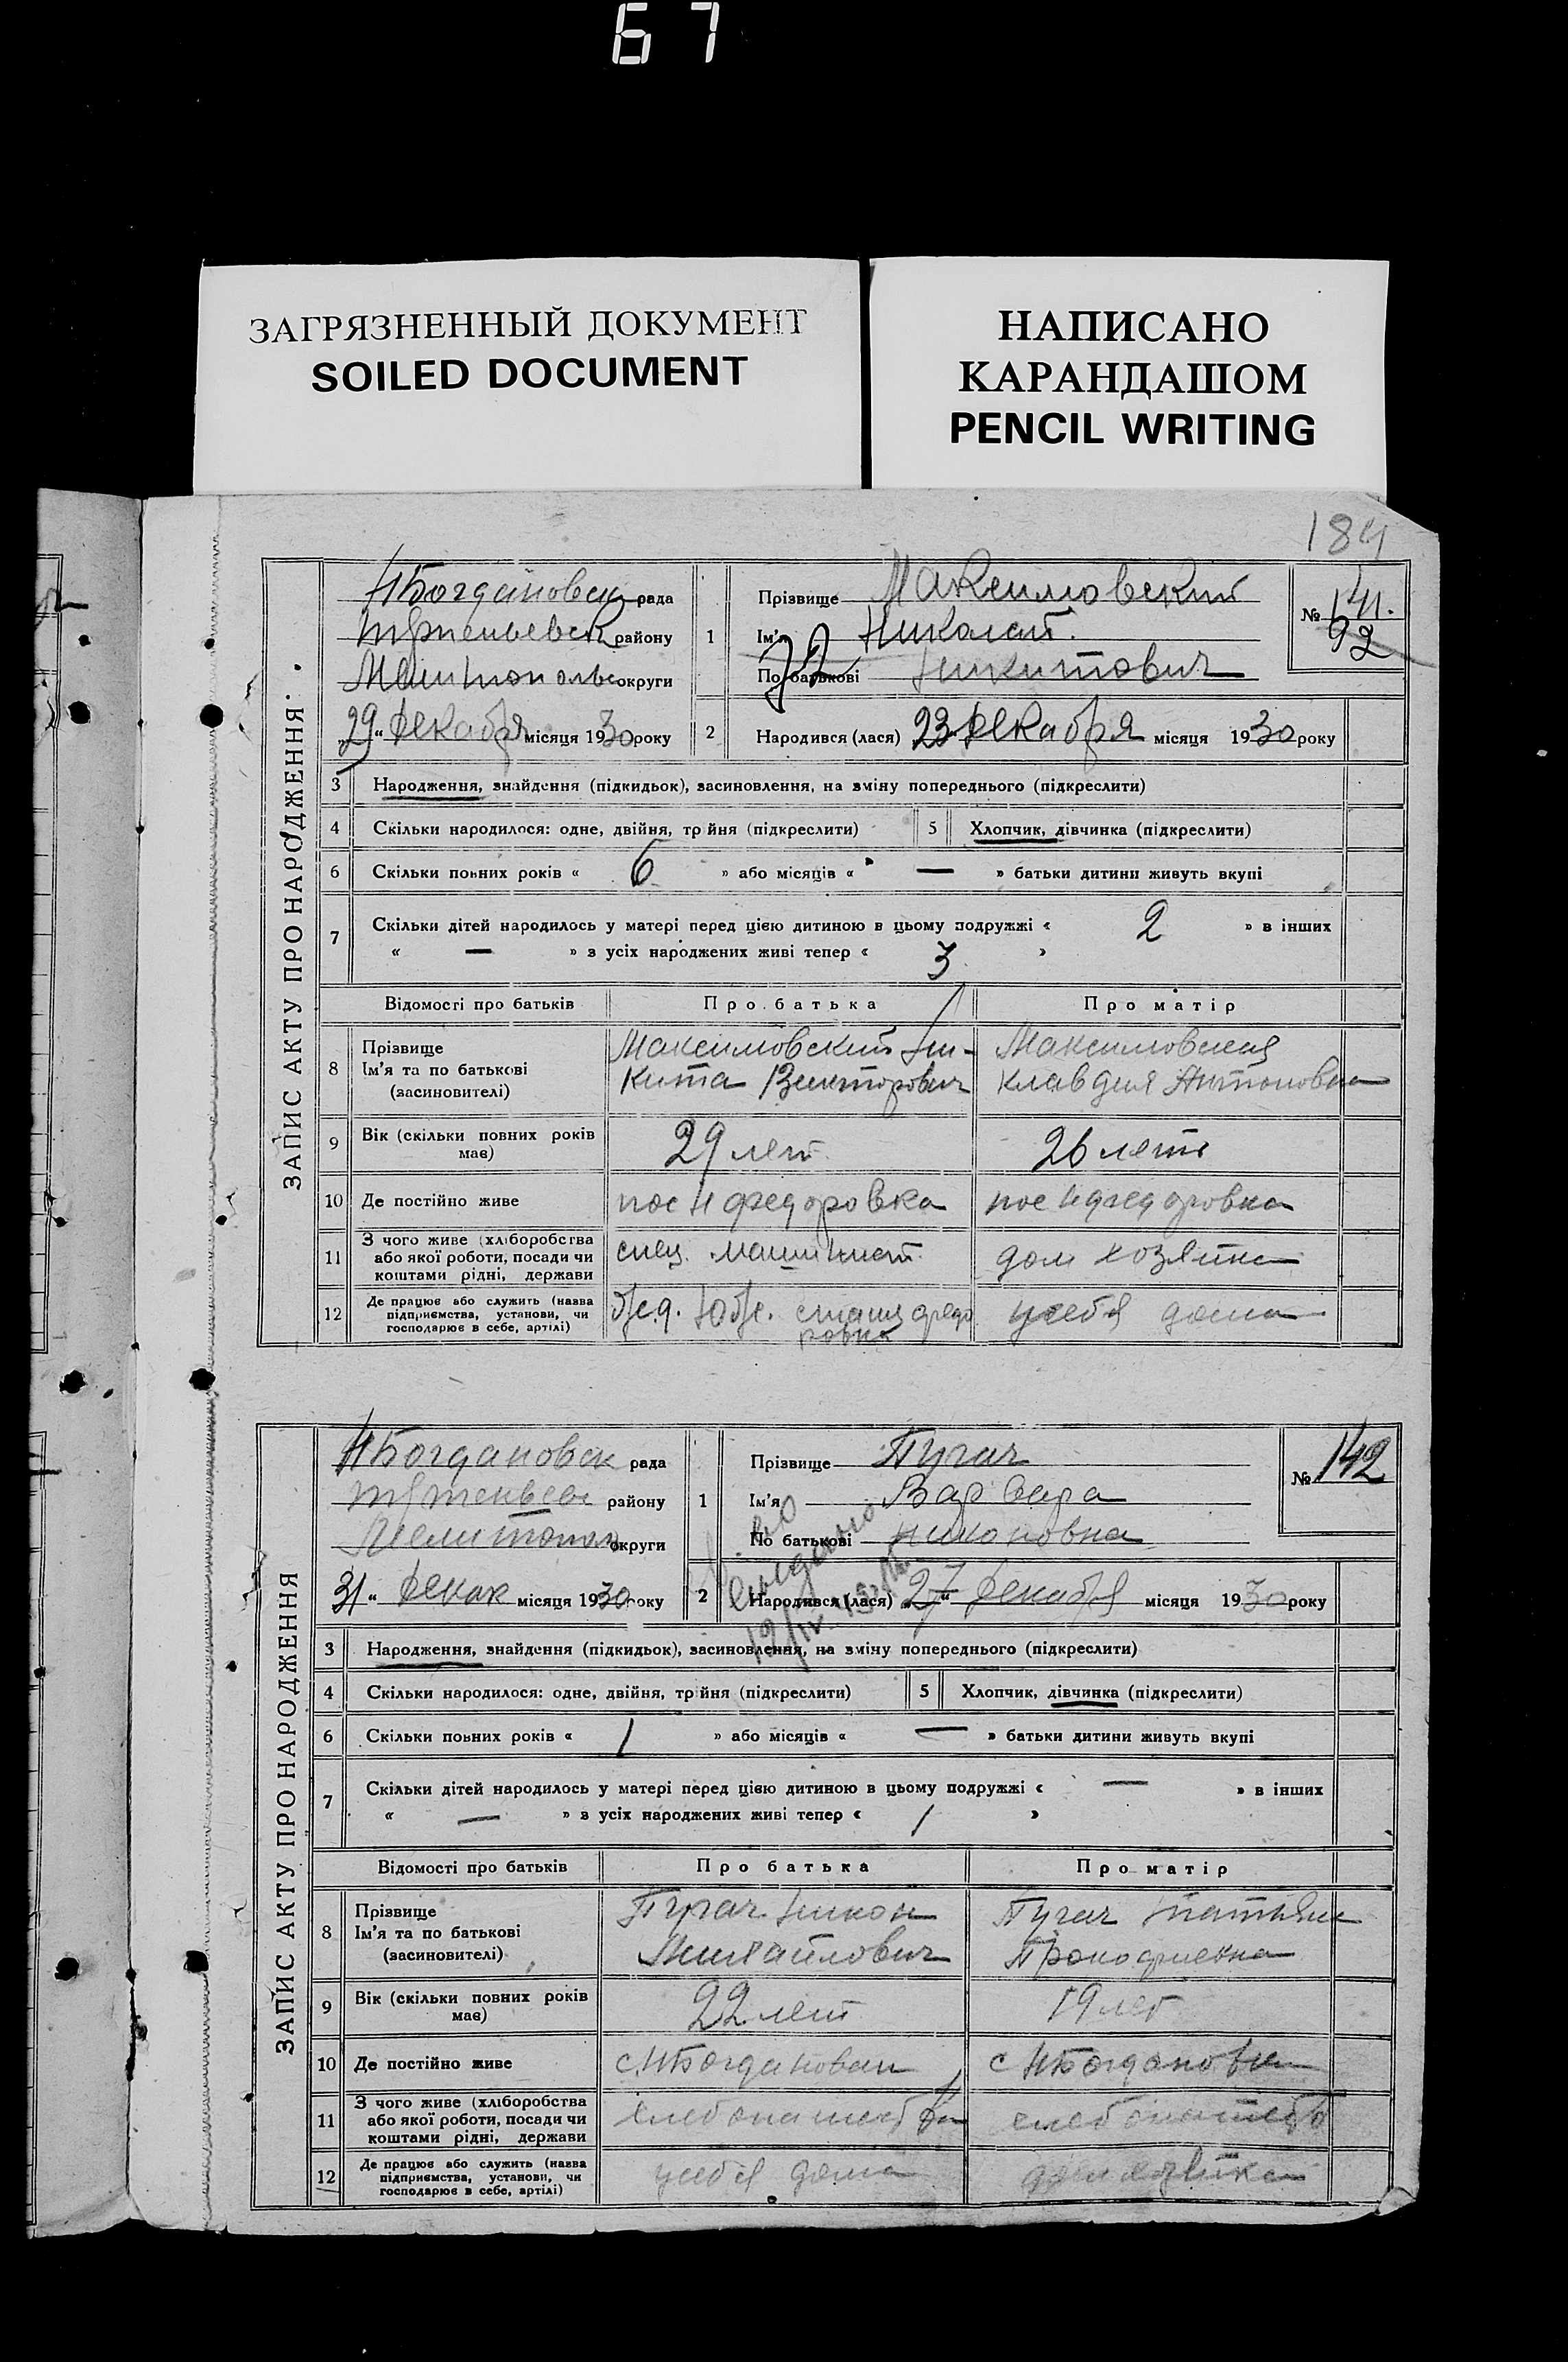 67
ЗАГРЯЗНЕННЫЙ ДОКУМЕНТ
SOILED DOCUMENT
НАПИСАНО
КАРАНДАШОМ
PENCIL WRITING
184
ЗАПИС АКТУ ПРО НАРОДЖЕННЯ
НБогдановск рада
району
округи
„29“ декабря місяця 1930 року
1 Прізвище Максимовский
Ім'я Николай.
По батькові Никитович
№ 141.
92
2 Народився (лася) 23 декабря місяця 1930 року
3 Народження, знайдення (підкидьок), засиновлення, на зміну попереднього (підкреслити)
4 Скільки народилося: одне, двійня, трійня (підкреслити) 5 Хлопчик, дівчинка (підкреслити)
6 Скільки повних років « 6 » або місяців « — » батьки дитини живуть вкупі
7 Скільки дітей народилось у матері перед цією дитиною в цьому подружжі « 2 » в інших
« — » з усіх народжених живі тепер « 3 »
Відомості про батьків Про батька Про матір
8 Прізвище
Ім'я та по батькові
(засиновителі)
Максимовский Ни-
кита Викторович
Максимовская
Клавдия Антоновна
9 Вік (скільки повних років
має)
29 лет
26 леть
10 Де постійно живе пос Н федоровка пос Н федоровка
11 З чого живе (хліборобства
або якої роботи, посади чи
коштами рідні, держави
спец. машинист.
дом хозяйка
12 Де працює або служить (назва
підприємства, установи, чи
господарює в себе, артілі)
станц федо
ровка
у себя дома
ЗАПИС АКТУ ПРО НАРОДЖЕННЯ
НБогдановск рада
району
Мелитопол округи
31“ декак місяця 1930 року
1 Прізвище Пугач
Ім'я Варвара
По батькові Никоновна
№ 142
2 Народився (лася) „27“ декабря місяця 1930 року
3 Народження, знайдення (підкидьок), засиновлення, на зміну попереднього (підкреслити)
4 Скільки народилося: одне, двійня, трійня (підкреслити) 5 Хлопчик, дівчинка (підкреслити)
6 Скільки повних років « 1 » або місяців « — » батьки дитини живуть вкупі
7 Скільки дітей народилось у матері перед цією дитиною в цьому подружжі « — » в інших
« — » з усіх народжених живі тепер « 1 »
Відомості про батьків Про батька Про матір
8 Прізвище
Ім'я та по батькові
(засиновителі)
Пугач Никон
Михайлович
Пугач Татьяна
Прокофиевна
9 Вік (скільки повних років
має)
22 лет
19 лет
10 Де постійно живе с. НБогдановки с НБогдановки
11 З чого живе (хліборобства
або якої роботи, посади чи
коштами рідні, держави
12 Де працює або служить (назва
підприємства, установи, чи
господарює в себе, артілі)
у себя дома